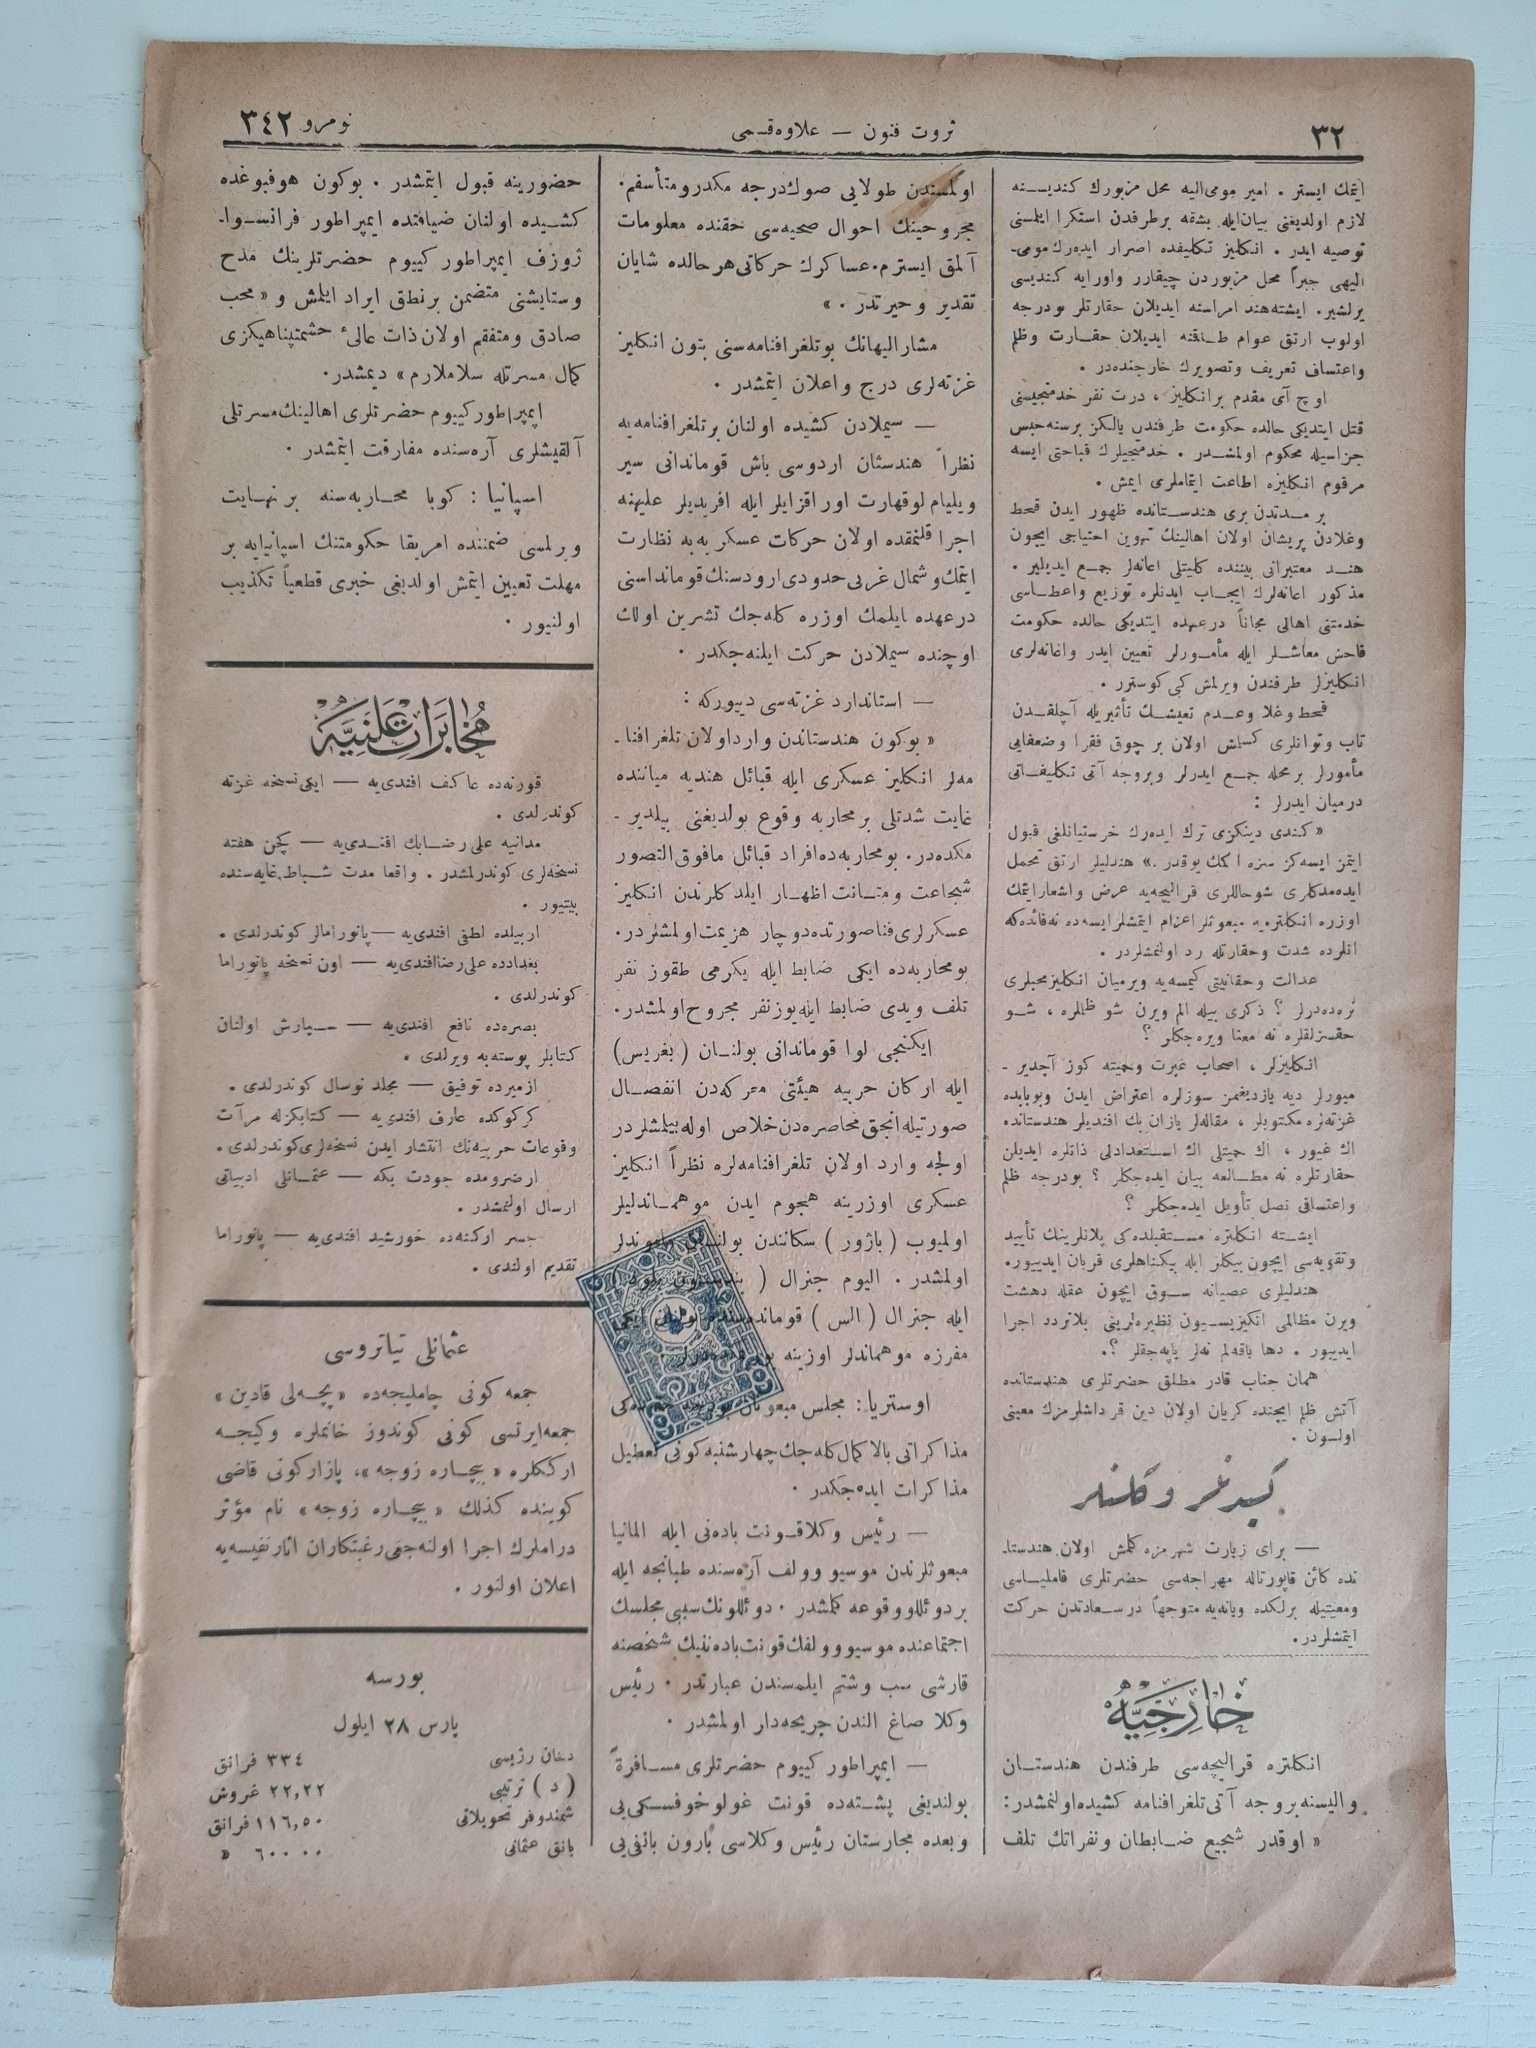 ٣٢
ثروت فنون — علاوه قسمی
نومرو ٣٤٢
ایتمك ایستر . امیر مومی‌الیه محل مزبورك كندیسنه
لازم اولدیغنی بیان ایله بشقه برطرفدن استكرا ایلمسنی
توصیه ایدر . انكلیز تكلیفنده اصرار ایده‌رك مومی‌ـ
الیهی جبراً محل مزبوردن چیقارر واورایه كندیسی
یرلشیر. ایشته هند امراسنه ایدیلان حقارتلر بودرجه
اولوب ارتق عوام طاقنه ایدیلان حقارت وظلم
واعتساف تعریف وتصویرك خارجنده‌در .
اوچ آی مقدم برانكلیز ، درت نفر خدمتجیسنی
قتل ایتدیكی حالده حكومت طرفندن یالكز برسنه حبس
جزاسیله محكوم اولمشدر . خدمتجیلرك قباحتی ایسه
مرقوم انكلیزه اطاعت ایتماملری ایمش .
بر مدتدن بری هندستانده ظهور ایدن قحط
وغلادن پریشان اولان اهالینك تهوین احتیاجی ایچون
هند معتبرانی بیننده كلیتلی اعانه‌لر جمع ایدیلیر .
مذكور اعانه‌لرك ایجاب ایدنلره توزیع واعطاسی
خدمتنی اهالی مجاناً درعهده ایتدیكی حالده حكومت
فاحش معاشلر ایله مأمورلر تعیین ایدر واعانه‌لری
انكلیزلر طرفندن ویرلمش كبی كوسترر .
قحط وغلا وعدم تعیشك تأثیریله آچلقدن
تاب وتوانلری كسلمش اولان بر چوق فقرا وضعفایی
مأمورلر برمحله جمع ایدرلر وبروجه آتی تكلیفاتی
درمیان ایدرلر :
« كندی دینكزی ترك ایده‌رك خرستیانلغی قبول
ایتمز ایسه‌كز سزه اكمك یوقدر .» هندلیلر ارتق تحمل
ایده‌مدكلری شوحاللری قرالیچه‌یه عرض واشعار ایتمك
اوزره انكلتره‌یه مبعوثلر اعزام ایتمشلر ایسه‌ده نه‌فائده‌كه
انلرده شدت وحقارتله رد اولنمشلردر.
عدالت وحقانیتی كیمسه‌یه ویرمیان انكلیز محبلری
نره‌ده‌درلر ؟ ذكری بیله الم ویرن شو ظلملره ، شو
حقسزلقلره نه معنا ویره‌جكلر ؟
انكلیزلر ، اصحاب غیرت وحمیته كوز آچدیرـ
میورلر دیه یازدیغمز سوزلره اعتراض ایدن وبوبابده
غزته‌لره مكتوبلر ، مقاله‌لر یازان بك افندیلر هندستانده
اك غیور ، اك حمیتلی اك استعدادلی ذاتلره ایدیلن
حقارتلره نه مطالعه بیان ایده‌جكلر ؟ بودرجه ظلم
واعتسافی نصل تأویل ایده‌جكلر ؟
ایشته انكلتره مستقبلده‌كی پلانلرینك تأیید
وتقویه‌سی ایچون بیكلر ایله بیكناهلری قربان ایدییور.
هندلیلری عصیانه سوق ایچون عقله دهشت
ویرن مظالمی انكیزیسیون نظیره‌لرینی بلاتردد اجرا
ایدییور . دها باقه‌لم نه‌لر یاپه‌جقلر ؟.
همان جناب قادر مطلق حضرتلری هندستانده
آتش ظلم ایچنده كریان اولان دین قرداشلرمزك معینی
اولسون .
كیدنلر و كلنلر
— برای زیارت شهرمزه كلمش اولان هندستاـ
نده كائن قاپورتاله مهراجه‌سی حضرتلری فاملیاسی
ومعیتیله برلكده ویانه‌یه متوجهاً درسعادتدن حركت
ایتمشلردر.
خارجیه
انكلتره قرالیچه‌سی طرفندن هندستان
والیسنه بروجه آتی تلغرافنامه كشیده اولنمشدر :
« اوقدر شجیع ضابطان ونفراتك تلف
اولمسندن طولایی صوك درجه مكدر ومتأسفم.
مجروحینك احوال صحیه‌سی حقنده معلومات
آلمق ایسترم. عساكرك حركاتی هر حالده شایان
تقدیر وحیرتدر . »
مشارالیهانك بو تلغرافنامه‌سنی بتون انكلیز
غزته‌لری درج واعلان ایتمشدر .
— سیملادن كشیده اولنان بر تلغرافنامه‌یه
نظراً هندستان اردوسی باش قوماندانی سیر
ویلیام لوقهارت اوراقزایلر ایله افریدیلر علیهنه
اجرا قلنمقده اولان حركات عسكریه‌یه نظارت
ایتمك وشمال غربی حدودی اردوسنك قومانداسنی
درعهده ایلمك اوزره كله‌جك تشرین اولك
اوچنده سیملادن حركت ایلنه‌جكدر .
— استاندارد غزته‌سی دییوركه :
« بوكون هندستاندن وارد اولان تلغرافناـ
مه‌لر انكلیز عسكری ایله قبائل هندیه میاننده
غایت شدتلی بر محاربه وقوع بولدیغنی بیلدیرـ
مكده‌در. بو محاربه‌ده افراد قبائل مافوق التصور
شجاعت ومتانت اظهار ایلدكلرندن انكلیز
عسكرلری فنا صورتده دوچار هزیمت اولمشلردر.
بو محاربه‌ده ایكی ضابط ایله یكرمی طقوز نفر
تلف ویدی ضابط ایله یوز نفر مجروح اولمشدر.
ایكنجی لوا قوماندانی بولنان ( بغریس )
ایله اركان حربیه هیئتی معركه‌دن انفصال
صورتیله انجق محاصره‌دن خلاص اوله‌بیلمشلردر
اولجه وارد اولان تلغرافنامه‌لره نظراً انكلیز
عسكری اوزرینه هجوم ایدن موهماندلیلر
اولمیوب ( باژور ) سكانندن بولنان ماموندلر
اولمشدر . الیوم جنرال
ایله جنرال ( الس ) قوماندسنده بولنان ایكی
مفرزه موهماندلر اوزینه
اوستریا: مجلس مبعوثان
مذاكراتی بالاكمال كله‌جك چهارشنبه كونی تعطیل
مذاكرات ایده‌جكدر .
— رئیس وكلا قونت باده‌نی ایله المانیا
مبعوثلرندن موسیو وولف آره‌سنده طبانجه ایله
بر دوئللو وقوعه كلمشدر . دوئللونك سببی مجلسك
اجتماعنده موسیو وولفك قونت باده‌نینك شخصنه
قارشی سب وشتم ایلمسندن عبارتدر . رئیس
وكلا صاغ الندن جریحه‌دار اولمشدر .
— ایمپراطور كییوم حضرتلری مسافرةً
بولندیغی پشته‌ده قونت غولوخوفسكی‌یی
وبعده مجارستان رئیس وكلاسی بارون بانفی‌یی
حضورینه قبول ایتمشدر . بوكون هوفبوغده
كشیده اولنان ضیافتده ایمپراطور فرانسواـ
ژوزف ایمپراطور كییوم حضرتلرینك مدح
وستایشنی متضمن بر نطق ایراد ایلمش و « محب
صادق ومتفقم اولان ذات عالیٔ حشمتپناهیكزی
كمال مسرتله سلاملارم » دیمشدر.
ایمپراطور كییوم حضرتلری اهالینك مسرتلی
آلقیشلری آره‌سنده مفارقت ایتمشدر .
اسپانیا : كوبا محاربه‌سنه بر نهایت
ویرلمسی ضمننده امریقا حكومتنك اسپانیایه بر
مهلت تعیین ایتمش اولدیغی خبری قطعیاً تكذیب
اولنیور .
مخابرات علنیه
قورنه‌ده عاكف افندی‌یه — ایكی نسخه غزته
كوندرلدی .
مدانیه علی رضا بك افندی‌یه — كچن هفته
نسخه‌لری كوندرلمشدر . واقعا مدت شباط غایه‌سنده
بیتیور .
اربیلده لطفی افندی‌یه — پانورامالر كوندرلدی .
بغدادده علی رضا افندی‌یه — اون نسخه پانوراما
كوندرلدی .
بصره‌ده نافع افندی‌یه — سپارش اولنان
كتابلر پوسته‌یه ویرلدی .
ازمیرده توفیق — مجلد نوسال كوندرلدی .
كركوكده عارف افندی‌یه — كتابكزله مرآت
وقوعات حربیه‌نك انتشار ایدن نسخه‌لری كوندرلدی .
ارضرومده جودت بكه — عثمانلی ادبیاتی
ارسال اولنمشدر .
جسر اركنه‌ده خورشید افندی‌یه — پانوراما
تقدیم اولندی .
عثمانلی تیاتروسی
جمعه كونی چاملیجه‌ده « پچه‌لی قادین »
جمعه ایرتسی كونی كوندوز خانملره وكیجه
ارككلره « بیچاره زوجه »، پازار كونی قاضی
كوینده كذلك « بیچاره زوجه » نام مؤثر
دراملرك اجرا اولنه‌جغی رغبتكاران آثار نفیسه‌یه
اعلان اولنور .
بورسه
پارس ٢٨ ایلول
دخان رژیسی ٣٣٤ فرانق
( د ) ترتیبی ٢٢,٢٢ غروش
شمندوفر تحویلاتی ١١٦,٥٠ فرانق
بانق عثمانی ٦٠٠ ٠٠ »